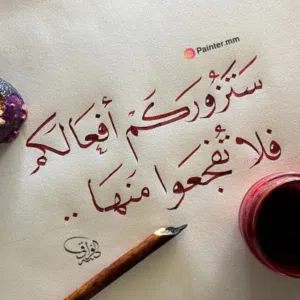 Painter.mm
سَتَزُورُكَمْ أفعَالكم
فلا تُفجَعوا منهَا..